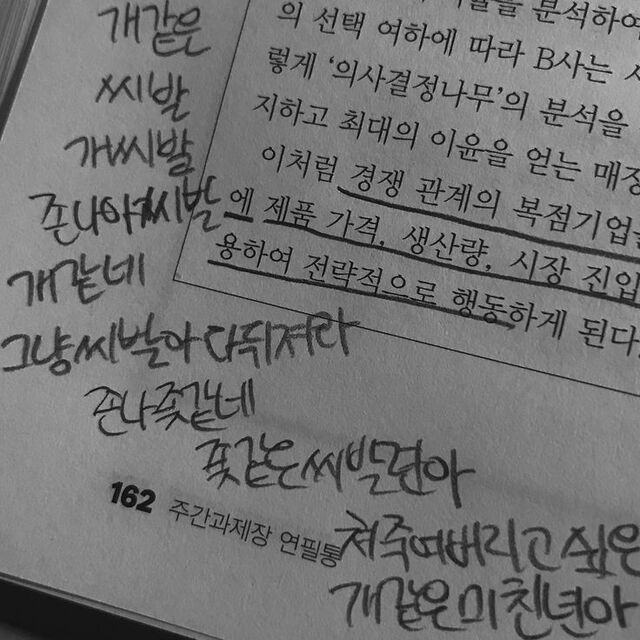 을 분석하여
의 선택 여하에 따라 B사는
렇게 '의사결정나무'의 분석을
지하고 최대의 이윤을 얻는 매장
이처럼 경쟁 관계의 복점기업
에 제품 가격, 생산량, 시장 진입
용하여 전략적으로 행동하게 된다
개같은
씨발
개씨발
존나아씨발
개같네
그냥씨발아다뒤져라
존나좆같네
좆같은씨발련아
162 주간과제장 연필통
쳐죽여버리고싶은
개같은미친년아